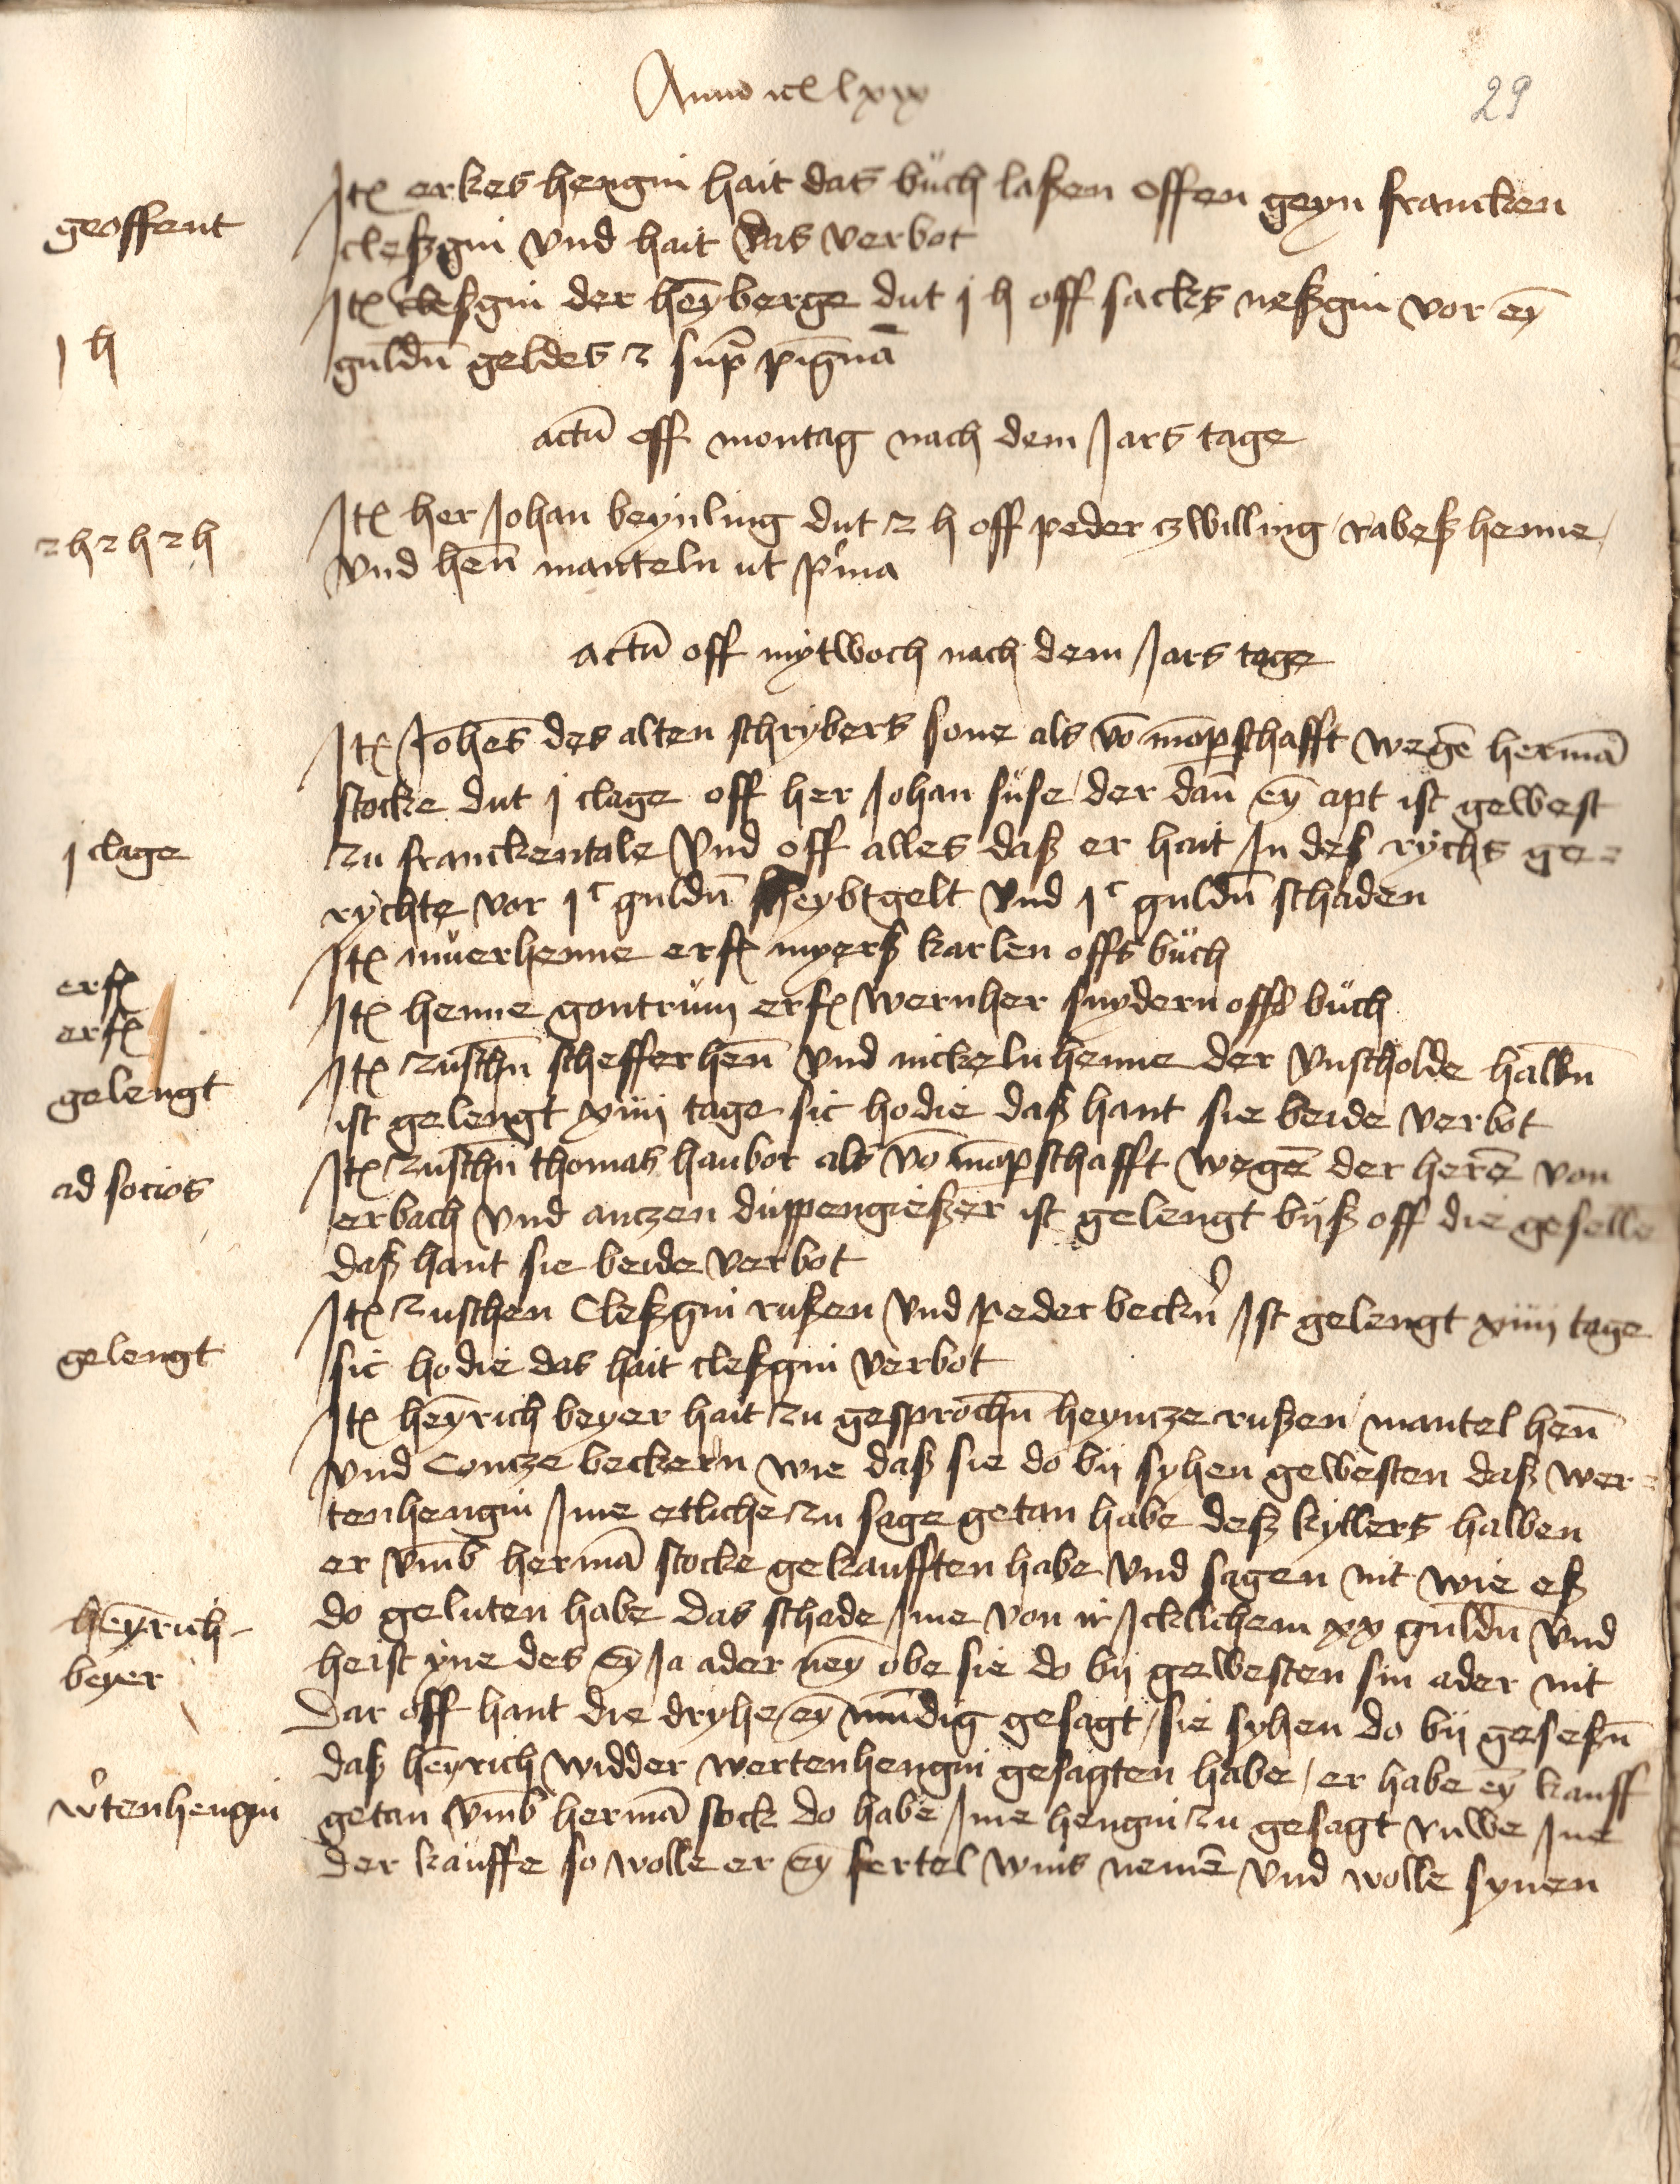 Anno etc lxix
29
geoffent
Itẽ erkes hengin hait das büch laßen offen geyn francken
cleßgin vnd hait das verbot
j h
Itẽ Cleßgin der heỹberge dut j h off sacks neßgin vor eỹ
guldñ geldes 2 sup̃ pigña
actũ off montag nach dem Jars tage
2 h 2 h 2 h
Itẽ her Johan beynling dut 2 h off peder zwilling rabeß henne
vnd heñ manteln ut pͥma
actũ off mytwoch nach dem Jars tage
Itẽ Joheẽs des alten schrybers sone als võ mõparschafft wegẽ hermã
stocke dut j clage off her Johan süse der dañ eỹ apt ist gewest
j clage
zu franckentale vnd off alles daß er hait In deß rychs ge=
rychte vor jᶜ guldñ heybtgelt vnd jᶜ guldñ schaden
Itẽ muerhenne erfẽ myerß karlen offs büch
erfẽ
Itẽ henne gontrüm erfẽ wernher snydern offs büch
erfẽ
Itẽ zuschñ schefferheñ vnd nickeln henne der vnscholde halbñ
gelengt
ist gelengt xiiij tage sic hodie daß hant sie beide verbot
ad socios
Itẽ zuschñ thomas haubor als võ mõparschafft wegẽ der herẽ von
erbach vnd anczen düppengießer ist gelengt byß off die geselle
daß hant sie beide verbot
Itẽ zuschen Cleßgin rußen vnd peder becknͬ Ist gelengt xiiij tage
gelengt
sic hodie das hait cleßgin verbot
Itẽ heỹrich beyer hait zu gesprochñ heyncze rußen mantel heñ
vnd Contze beckern wie daß sie do by syhen gewesten daß wer=
tenhengin Ime etliche zu sage getan habe deß kyllers halben
er vm̃b hermã stocke gekaufften habe vnd sagen nit wie eß
heỹrich
do geluten habe das schade Ime von ir Icklichem xx guldñ vnd
beyer
heist yne des eỹ Ja ader neỹ obe sie do by gewesten sin ader nit
Dar off hant die dryhe eỹ mũdig gesagt sie syhen do by geseßñ
daß heỹrich widder wertenhengin gesagten habe er habe eỹ kauff
wͬtenhengin
getan vm̃b hermã stock do habe Ime hengin zu gesagt ruwe Ine
der kauffe so wolle er eỹ fertel wins nemẽ vnd wolle synen